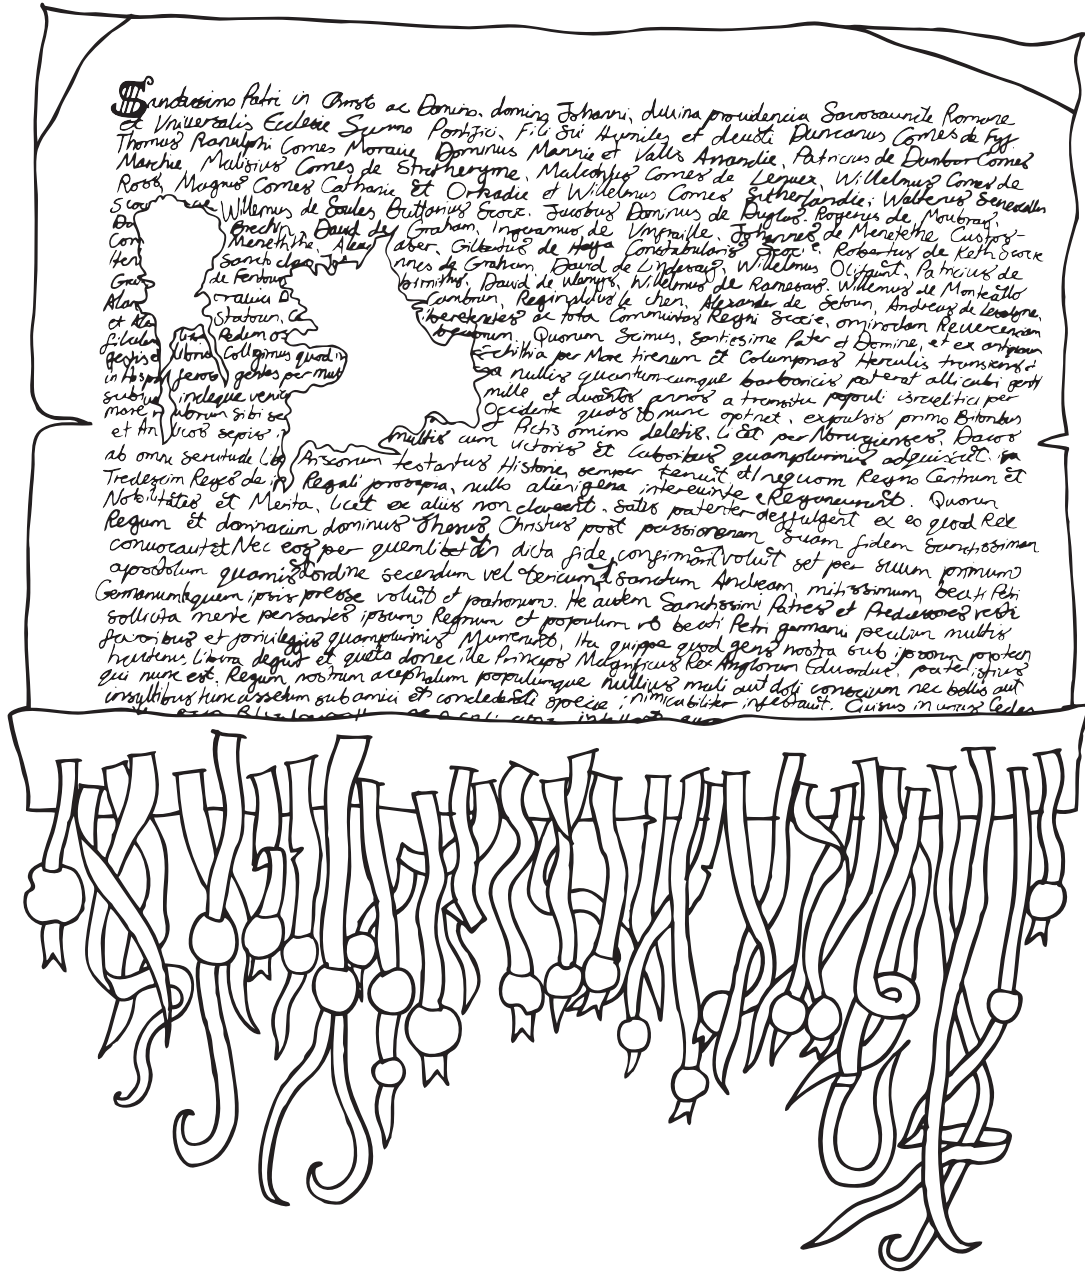 Sanctissimo Patri in Christo ac Domino, domino Johanni, diuina prouidencia Sacrosancte Romane
et Vniuersalis Ecclesie Summo Pontifici, Filii Sui Humiles et deuoti Duncanus Comes de Fyf,
Thomas Ranulphi Comes Morauie Dominus Mannie et Vallis Anandie, Patricius de Dunbar Comes
Marchie, Malisius Comes de Stratheryne, Malcolmus Comes de Leuenax, Willelmus Comes de
Ross, Magnus Comes Cathanie et Orkadie et Willelmus Comes Sutherlandie; Walterus Senescallus
Scoc Willemus de Soules Buttelarius Scocie, Jacobus Dominus de Duglas, Rogerus de Moubray,
Do Brechin, Dauid de Graham, Ingeramus de Vmfrauille, Johannes de Menetethe Custos
Com Menethithe, Alex aber, Gilbertus de Haya Constabularius Scocie, Robertus de Keth Scocie
Hen Sancto Claro, Jo nnes de Graham, Dauid de Lindesay, Willelmus Olifaunt, Patricius de
Gra de Fentoun birnithy, Dauid de Wemys, Willelmus de Ramesay, Willemus de Montealto
Alan Cambrun, Reginaldus le chen, Alexander de Setoun, Andreas de
et Ale Statoun, C libere tenentes ac tota Communitas Regni Scocie, omimodam Reuerenciam
filialem pedum os Quorum Scimus, Santissime Pater et Domine, et ex antiquorum
gestis e libris Colligimus quod in Schithia per Mare tirenum et Columpnas Herculis transiens
in Hispa feroces gentes per mult a nullis quantumcumque barbaricis poterat allicubi genti
subiu indeque venie mille et ducentos annos a transitu populi israelitici per
more ulorum sibi se Occidente quas nunc optinet, expulsis primo Britonibus
et An ucos sepius i multis cum et Pictis omino deletis, licet per Noruagienses, Dacos
ab omni seruitute Lib Priscorum testantur Historie, semper tenuit. In quorum Regno Centum et
Tredescim Reges de i Regali prosapia, nullo alienigena interueniente, Regnauerunt. Quorum
Nobilitates et Merita, licet ex aliis non clarerent, satis patenter effulgent ex eo quod Rex
Regum et dominacium dominus Jhesus Christus post passionem suam fidem Sanctissimam
conuocauit. Nec eos per quemlibet in dicta fide confirmari voluit set per suum primum
apostolum quamuis ordine secundum vel tercium, sanctum Andream, mitissimum beati Petri
Germanum quem ipsis preesse voluit vt patronum. Hec autem Sanctissimi Patres et Predecessores vestri
sollicita mente pensantes ipsum Regnum et populum vt beati Petri germani peculium multis
fauoribus et priuilegiis quamplurimis Munierunt, Ita quippe quod gens nostra sub ipsorum protec
hactenus libera deguit et quieta donec ille Princeps Magnificus Rex Anglorum Eduardus, pater istius
qui nunc est, Regnum nostrum acephalum populumque nullius mali aut doli conscium nec bellis aut
insultibus tunc assuetum sub amici et confederati specie inimicabiliter infestauit. Cuius iniurias Cedes